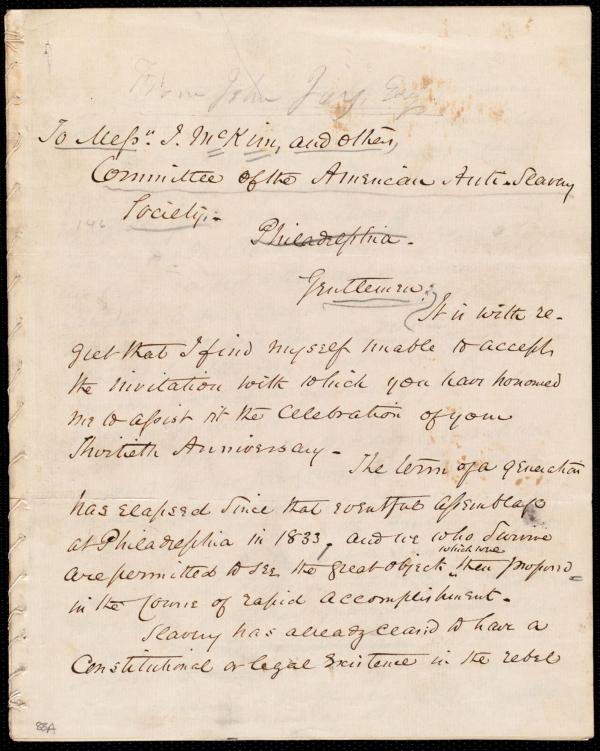 From John Jay, Esq.
To Messrs. J. McKim, and others,
Committee of the American Anti-Slavery
Society.
146
Philadelphia.
Gentlemen,
It is with re-
gret that I find myself unable to accept
the invitation with which you have honored
me to assist at the Celebration of your
Thirtieth Anniversary.
The term of a generation
has elapsed since that eventful assemblage
at Philadelphia in 1833, and we who survive
which were
are permitted to see the great objects then proposed
in the course of rapid accomplishment.
Slavery has already ceased to have a
Constitutional or legal existence in the rebel
88A